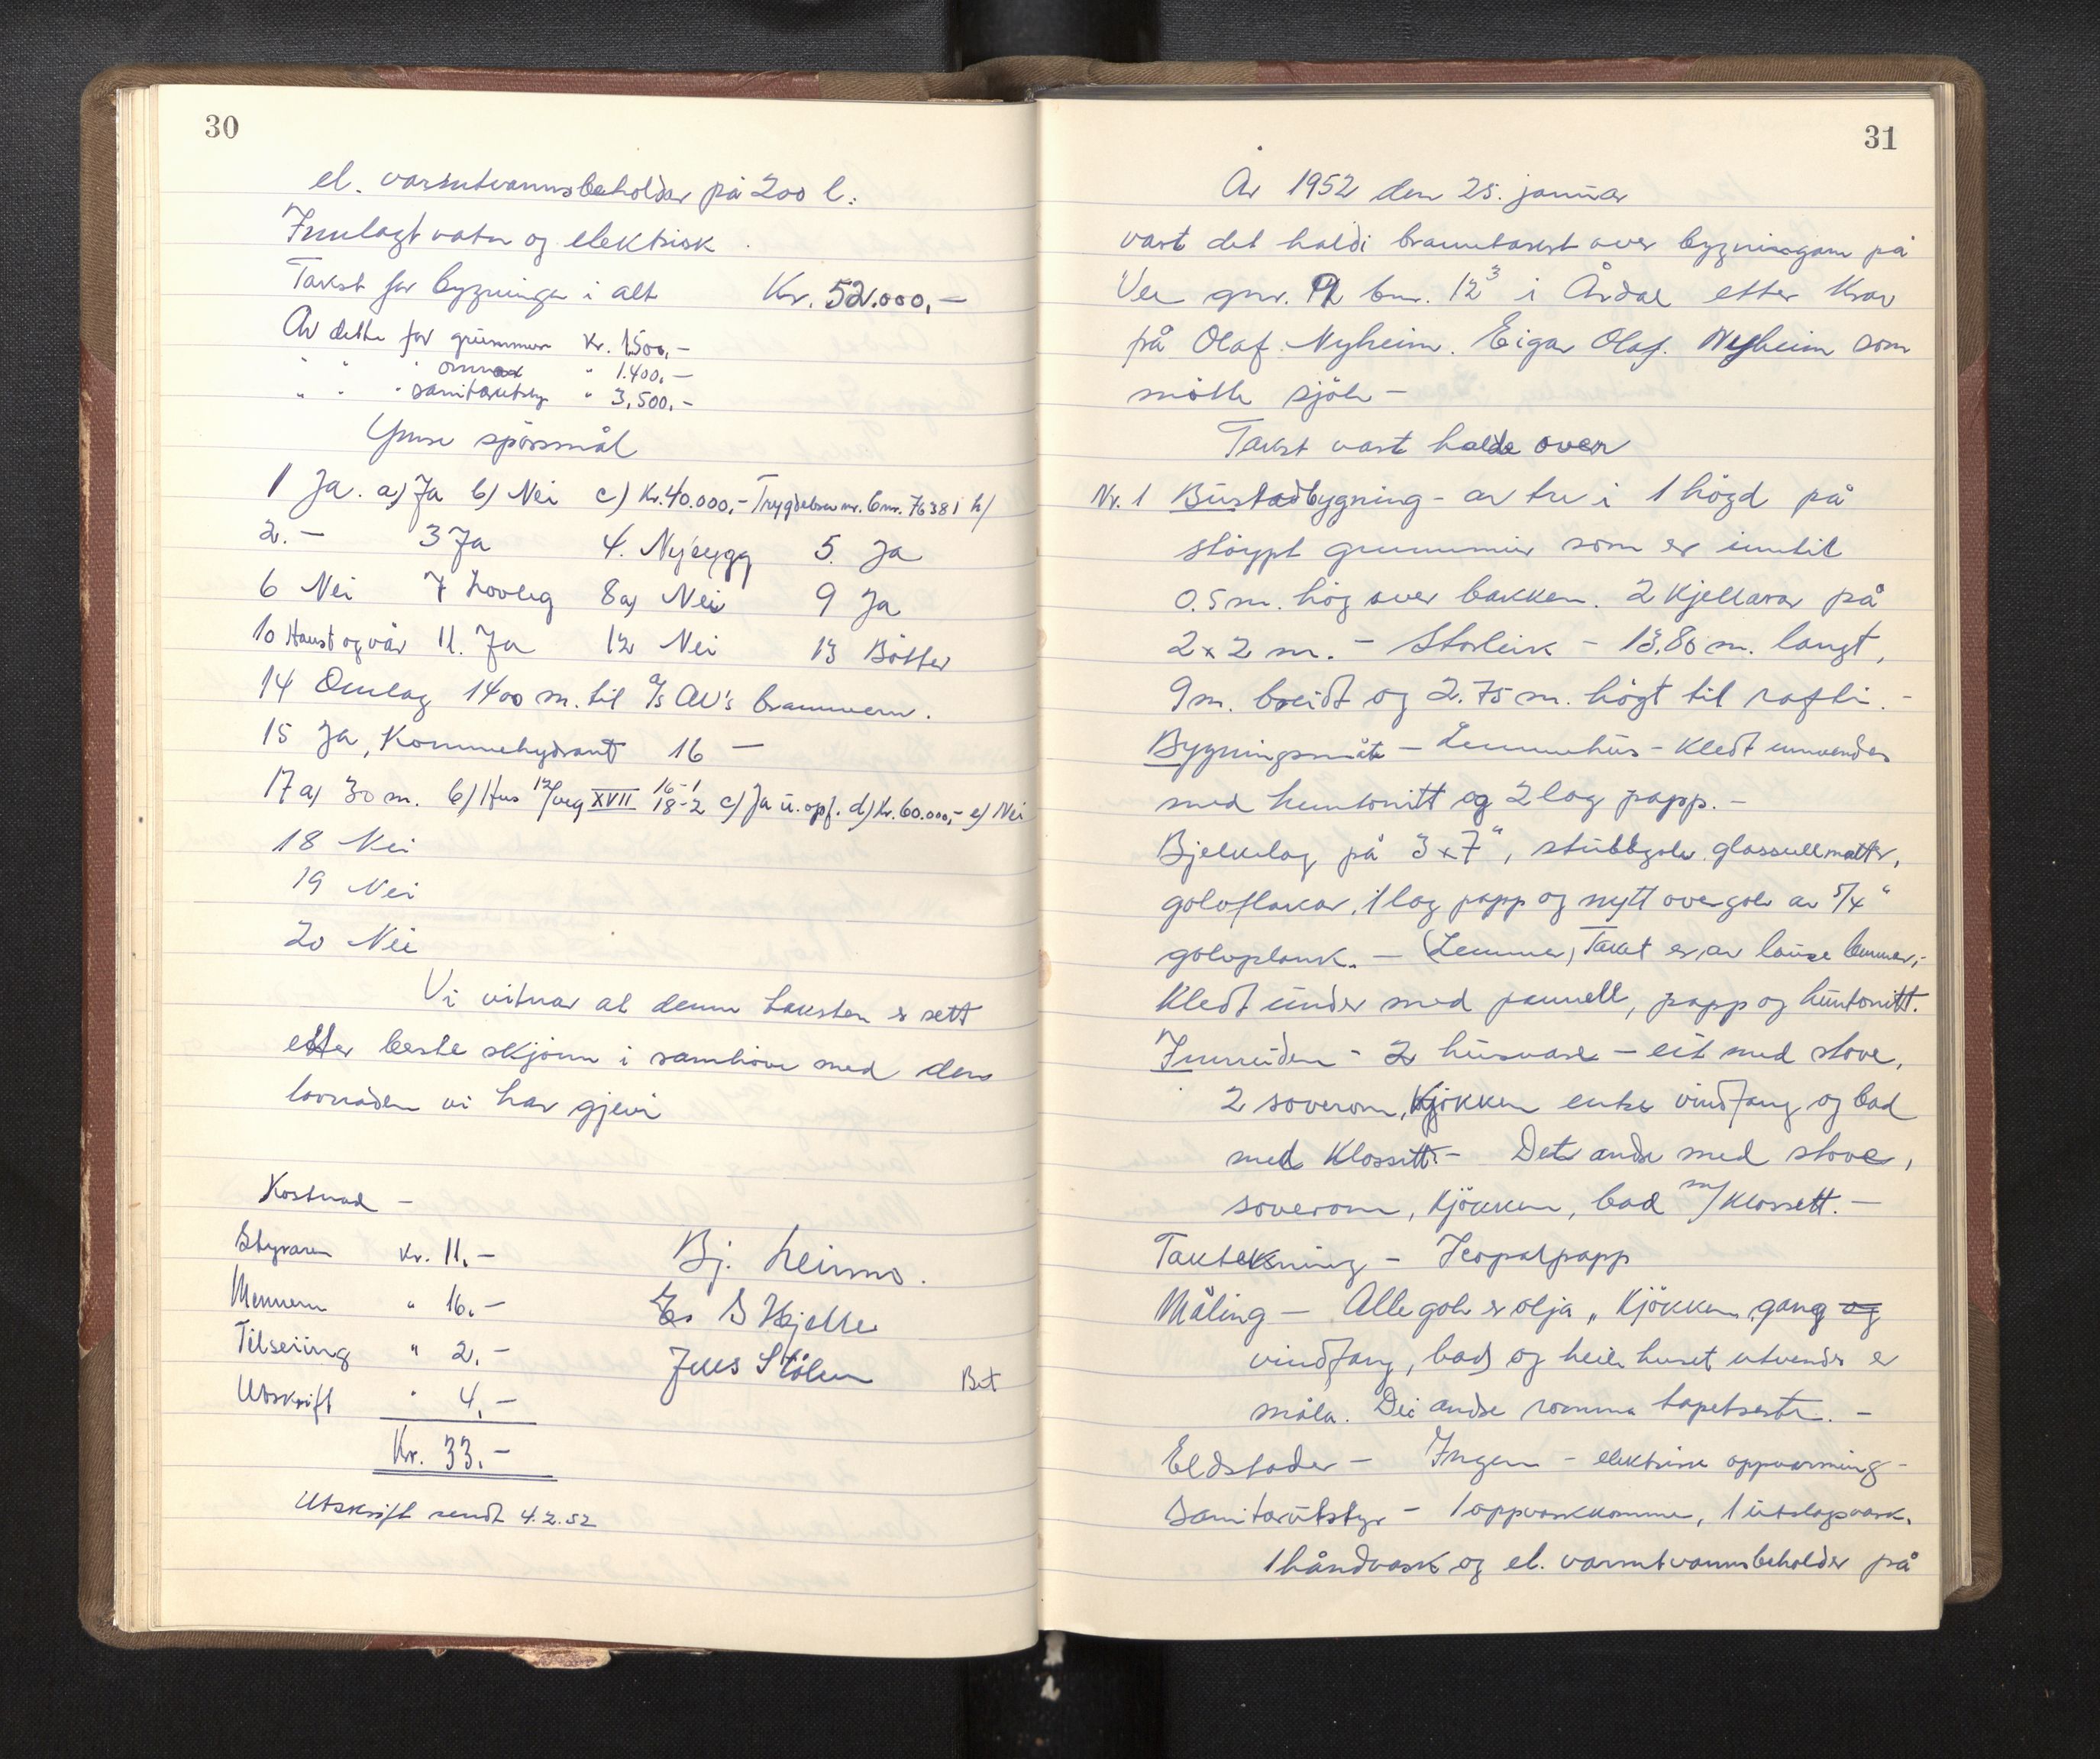 30
el. varmtvannsbeholder på 200 l.
Innlagt vatn og elektrisk.
Takst for bygninga i alt Kr. 52.000,-
Av dette for grunnmur Kr. 1.500,-
" " " omnar " 1.400,-
" " " sanitærutstyr " 3.500,-
Ymse spörsmål
1 Ja. a) Ja b) Nei c) Kr. 40.000,- Trygdebrev nr. bnr. 76381 h/
2. - 3 Ja 4. Nybygg 5. Ja
6 Nei 7 Lovleg 8a) Nei 9 Ja
10 Haust og vår 11. Ja 12 Nei 13 Bötter
14 Omlag 1400 m. til A/S ÅV's brannvern.
15 Ja, Kommehydrant 16 -
17 a) 30 m. b) Hus 12/veg XVII 16-1 18-2 c) Ja u. opf. d) Kr. 60.000,- e) Nei
18 Nei
19 Nei
20 Nei
Vi vitnar at denne taksten er sett
etter beste skjönn i samhöve med den
lovnaden vi har gjevi
Kostnad -
Styraren Kr. 11,- Bj. Leirmo.
Mennene " 16,- S Hjelle
Tilseiing " 2,- Jens Stölen Bet
Utskrift " 4,-
Kr. 33,-
Utskrift sendt 4.2.52
31
År 1952 den 25. januar
vart det haldi branntakst over bygningane på
Ve gnr. 12 bnr. 12³ i Årdal etter krav
på Olaf Nyheim. Eigar Olaf Nyheim som
mötte sjölv -
Takst vart halde over
Nr. 1 Bustadbygning - av tre i 1 högd på
stöypt grunnmur som er inntil
0.5 m. hög over bakken. 2 kjellarar på
2 x 2 m. - Storleik - 13,80 m. langt,
9 m. breidt og 2.75 m. högt til rafti. -
Bygningsmåte - Lemmehus - kledt innvendes
med huntonitt og 2 lag papp. -
Bjelkelag på 3 x 7", stubbgolv glassullmatter,
golvflakar, 1 lag papp og nytt overgolv av 5/4"
golvplank. - (Lemmer) Taket er av lause lemmer,-
kledt under med pannell, papp og huntonitt.
Innreiden - 2 husvære - eit med stove,
2 soverom, kjökken entre vindfang og bad
med klossett. - Det andre med stove,
soverom, kjökken, bad m/klossett. -
Taktekning - Icopalpapp
Måling - Alle golv er olja, kjökken, gang og
vindfang, bad og heile huset utvendes er
måla. Dei andre romma tapetserte. -
Eldstader - Ingen - elektrisk oppvarming -
Sanitærutstyr - 1 oppvaskkomme, 1 utslagsvask,
1 håndvask og el. varmtvannsbeholder på